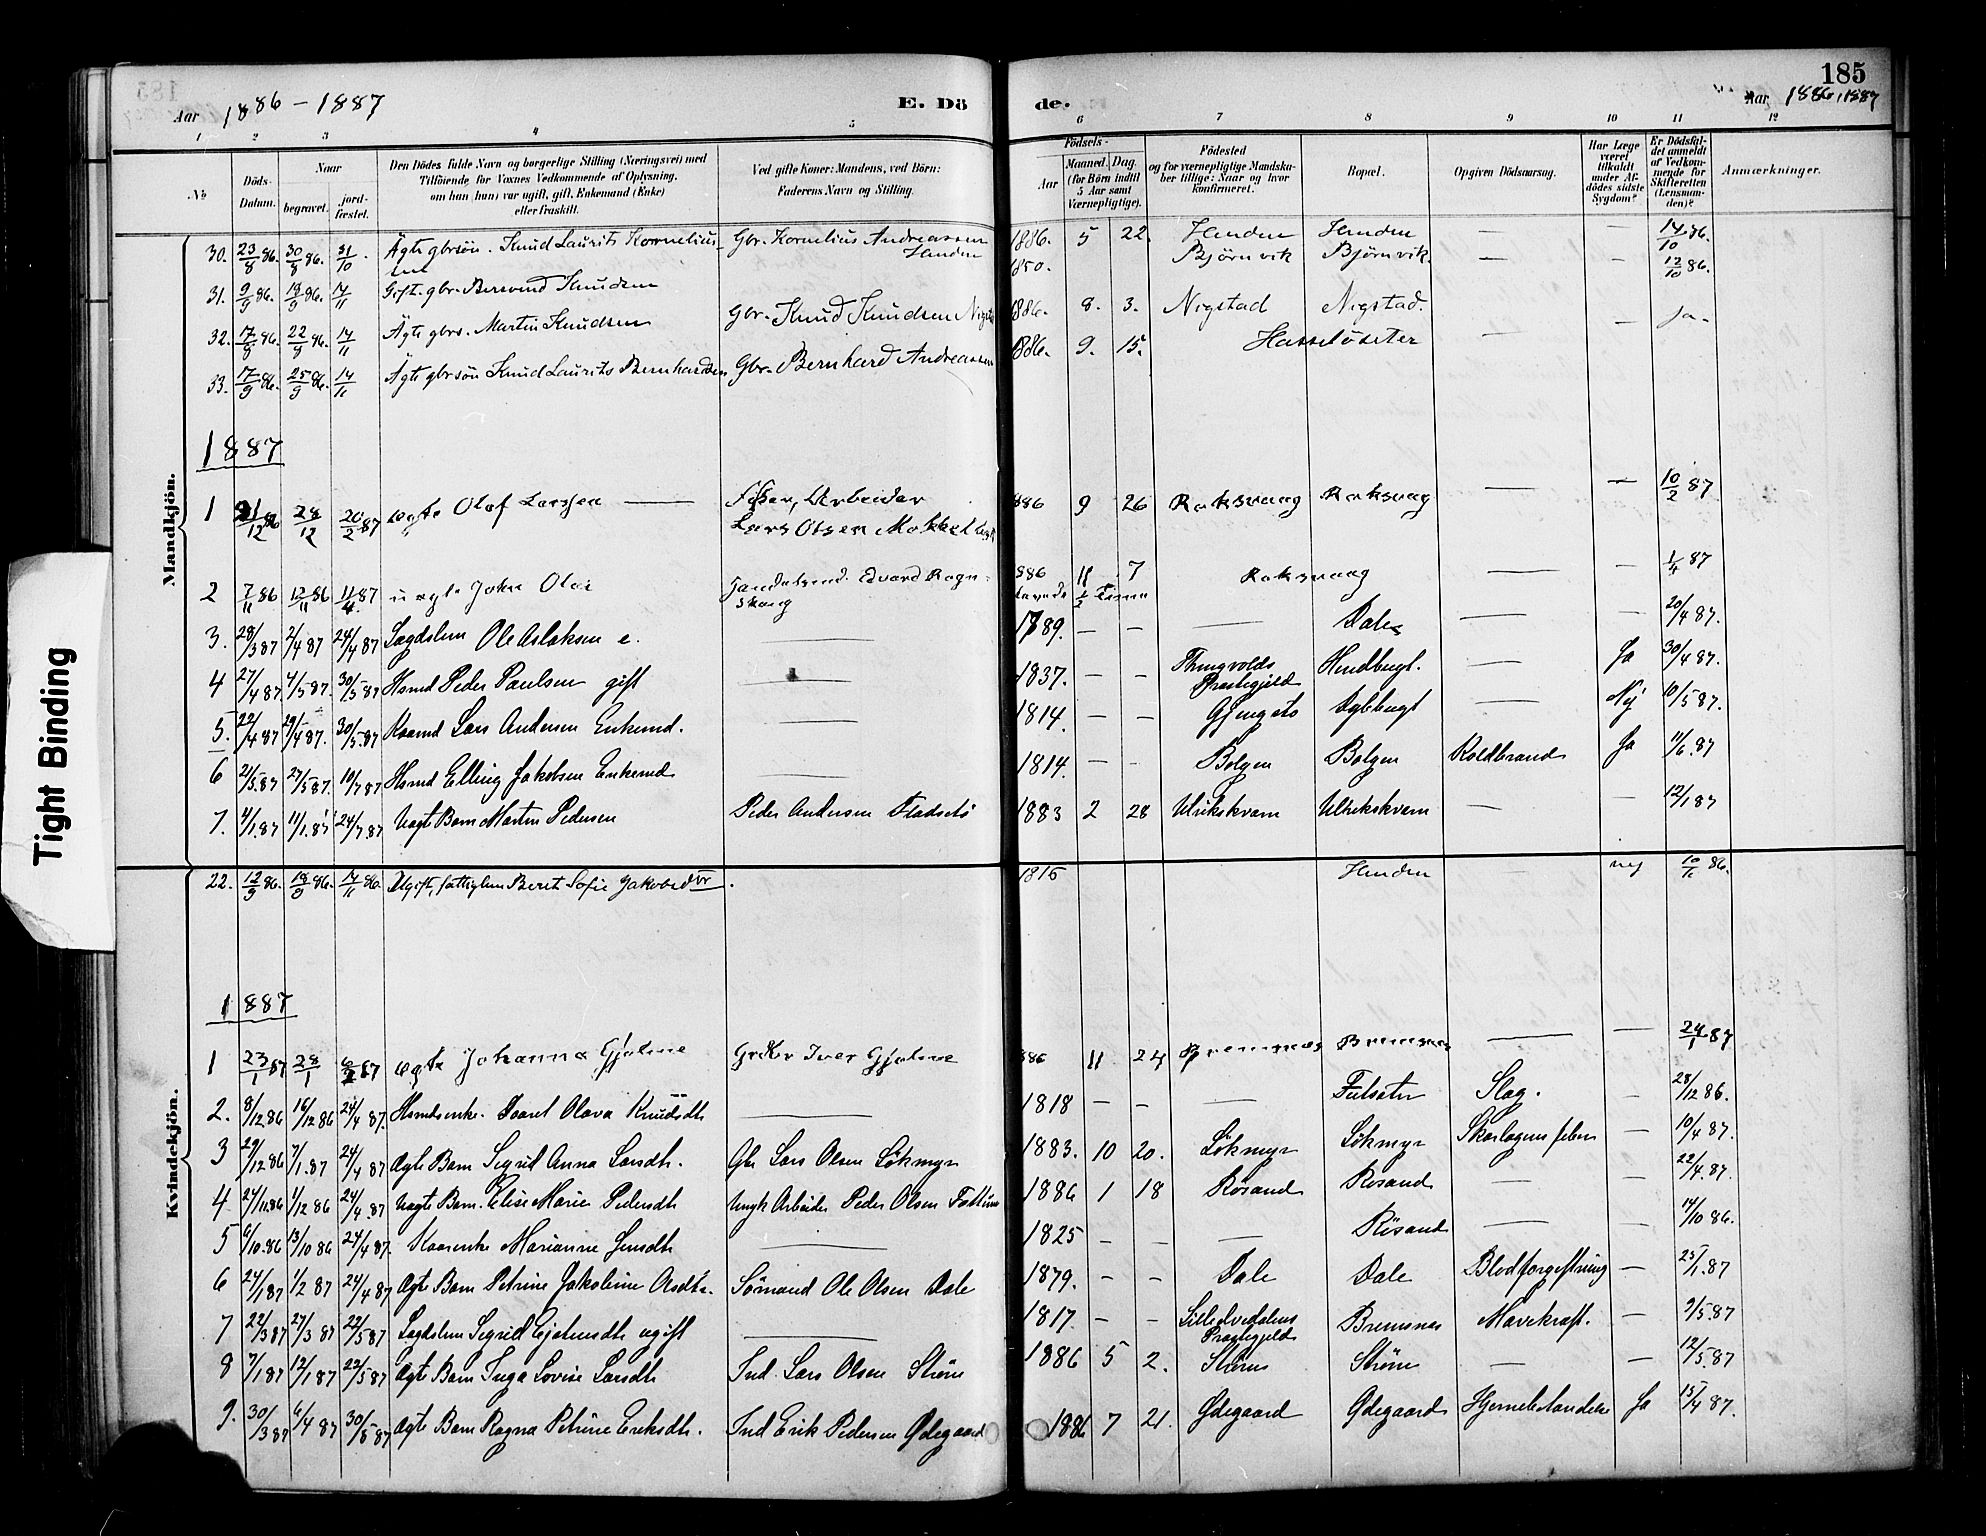 185
Aar 1886 – 1887 E. Dö de. Aar 1886, 1887
1 2 3 4 5 6 7 8 9 10 11 12
No Döds-Datum. Naar begravet. jord-fæstet. Den Dödes fulde Navn og borgerlige Stilling (Næringsvei) med Tilföiende for Voxnes Vedkommende af Oplysning, om han (hun) var ugift, gift, Enkemand (Enke) eller fraskilt. Ved gifte Koner: Mandens, ved Börn: Faderens Navn og Stilling. Födsels- Aar Maaned. Dag. (for Börn indtil 5 Aar samt Værnepligtige). Födested og for værnepligtige Mandskaber tillige: Naar og hvor konfirmeret. Bopæl. Opgiven Dödsaarsag. Har Læge været tilkaldt under Afdödes sidste Sygdom? Er Dödsfaldet anmeldt af Vedkommende for Skifteretten (Lensmanden)? Anmærkninger.
Mandkjön.
30. 23/8 86. 30/8 86. 31/10. Ägte gbrsön. Knud Laurits Kornelius- Gbr. Kornelius Andreassen 1886. 5 22. Henden Henden — — 14/10 86.
sen Henden
31. 9/9 86. 18/9 86. 14/11 Gift. gbr. Bersvend Knudsen 1850. Björnvik Björnvik. — — 12/10 86.
32. 17/9 86. 22/9 86. 14/11 Ägte gbrs. Martin Knudsen Gbr. Knud Knudsen 1886. 8. 3. Nigstad Nigstad.
33. 17/9 86. 25/9 86. 14/11 Ägte gbrsön Knud Laurits Bernhardsen Gbr. Bernhard Andreassen 1886. 9. 15. Hasselöseter — — Ja.
1887
1 21/12 86 28/12 20/2 87 ægte Olaf Larssen — Arbeider 886 9 26 Roksvaag Roksvaag — — 10/2 87
Lars Olsen
2 7/11 86 12/11 86 11/4 87 uægte John Olai Edvard Rogn- 886 11 7 Roksvaag — — 1/4 87
skoug levede 1/2 Time
3. 28/3 87 2/4 87 24/4 87 Lægdslem Ole Aslaksen e. — 1789. — — — Dale — — 20/4 87.
4 27/4 87 4/5 87. 30/5 87 Hsmd Peder Paulsen gift — 1837. — — Thingvolds Hendbugt. — Ja 30/4 87.
Præstegjeld
5. 22/4 87 29/4 87. 30/5. 87 Kaamd Lars Andersen Enkemd. — 1814. — — Gjengstö Dybbugt — Nej 10/5 87.
6 21/5. 87 27/5 87. 10/7 87 Hsmd Elling Jakobsen Enkemd — 1814. — — Bolgen Bolgen Koldbrand Ja 11/6. 87
7. 4/1. 87 11/1. 87 24/7. 87 Uægte Barn Morten Pedersen Peder Andersen Fladsetö 1883 2 28 Ulrikskvam Ulrikskvam — — 12/1 87
Kvindekjön.
22. 12/9 86. 18/9 86. 14/11 86. Ugift, fattiglem Beret Sofie Jakobsdtr. 1815 Henden nej 10/11 86.
1887
1 23/1 87 28/1 6/2 87 ægte Johanna Gjelme Iver Gjelme 886 11 24 Bremsnæs Bremsnæs — — 24/1 87
2. 8/12 86 16/12 86 24/4 87. Hsmdsenke. Olava Knudsdtr — 1818 — — — Futseter Slag. — 28/12 86.
3 29/12 86 7/1. 87 24/4 87 Ægte Barn Sigrid Anna Larsdtr. Gbr Lars Olsen Lökmyr 1883. 10 20. Lökmyr Lökmyr Skarlagensfeber — 10/4 87.
4 24/11. 86 1/12 86 24/4. 87 Uægte Barn. Elise Marie Pedersdtr Ungk Arbeider Peder Olsen 1886 1 18 Rösand Rosand — — 22/4. 87.
5 6/10. 86 13/10 86 24/4 87. Kaarenke Marianne Jensdtr — 1825 — — — Rösand — — 14/10 86.
6 24/1 87 1/2 87 24/4 87 Ægte Barn Petrine Jakobine Olsdtr. Sömand Ole Olsen Dale 1879. — — Dale Dale Blodforgiftning — 25/1. 87
7 22/3 87 27/3 87 22/5 87 Lægdslem Sigrid ugift — 1817. — — Lilledvedalens Bremsnæs Mavekræft. — 9/5. 87
Præstegjeld
8 7/1 87 12/1 87 22/5 87 Ægte Barn Inga Lovise Larsdtr Ind. Lars Olsen Ström 1886 5 2. Ström Ström — — 12/5. 87
9. 30/3 87 6/4 87 30/5 87 Ægte Barn Ragna Petrine Eriksdtr. Ind Erik Pedersen Ödegaard 1886 7 21. Ödegaard Ödegaard Hjernebetændelse Ja 15/4 87.
Tight Binding